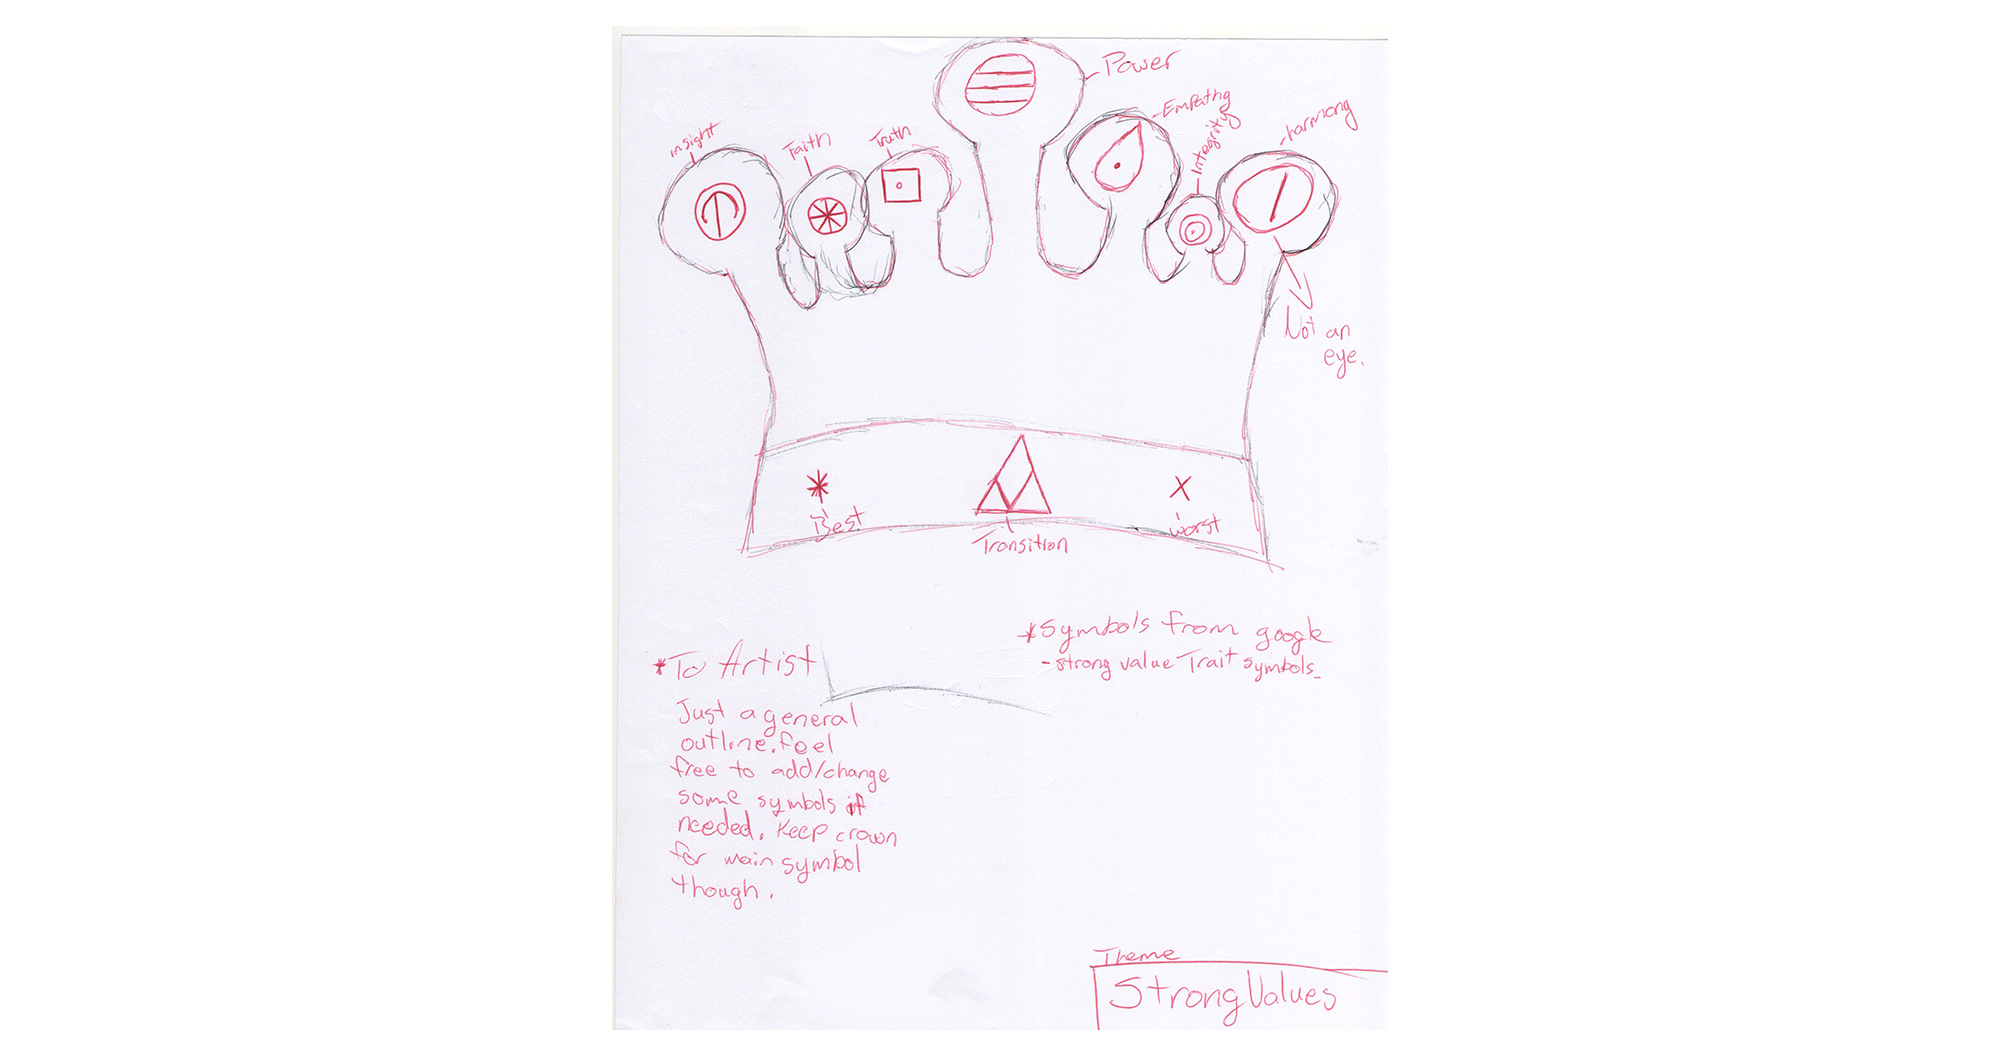 Power
Empathy
Integrity
harmony
insight
Faith
Truth
Not an
eye.
Best
Transition
worst
*Symbols from google
- strong value Trait symbols_
*To Artist
Just a general
outline. feel
free to add/change
some symbols if
needed. Keep crown
for main symbol
though.
Theme
Strong Values